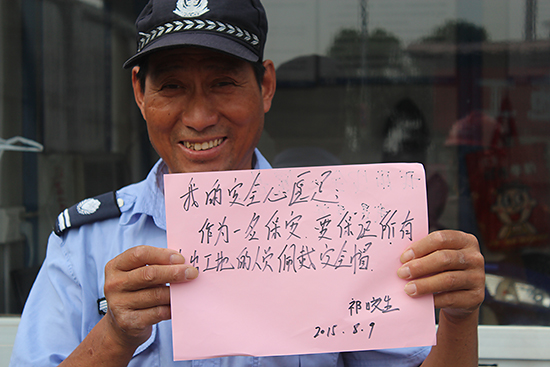 我的安全心愿是：
作为一名保安 要保证所有
出工地的人佩戴安全帽.
2015.8.9